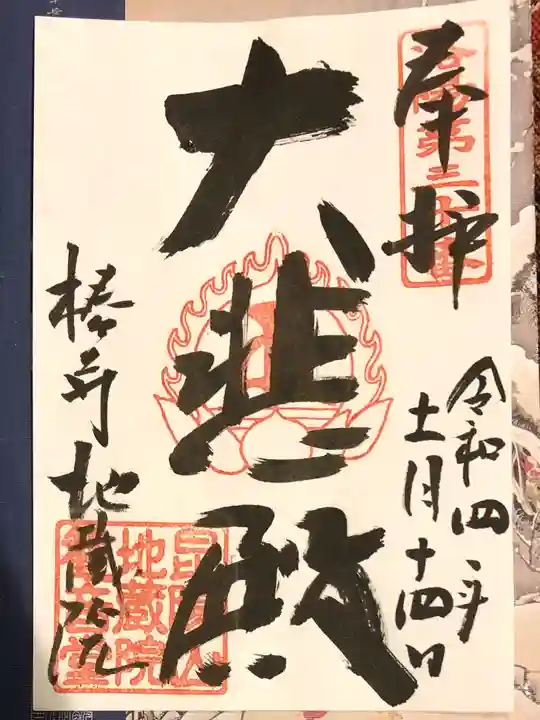 奉拝
洛陽第三十番
令和四年
十一月十四日
大悲殿
椿寺地蔵院
昆陽山
地蔵院
観音堂